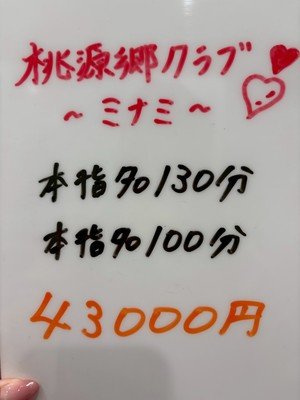 桃源郷クラブ
～ミナミ～
本指名130分
本指名100分
43000円